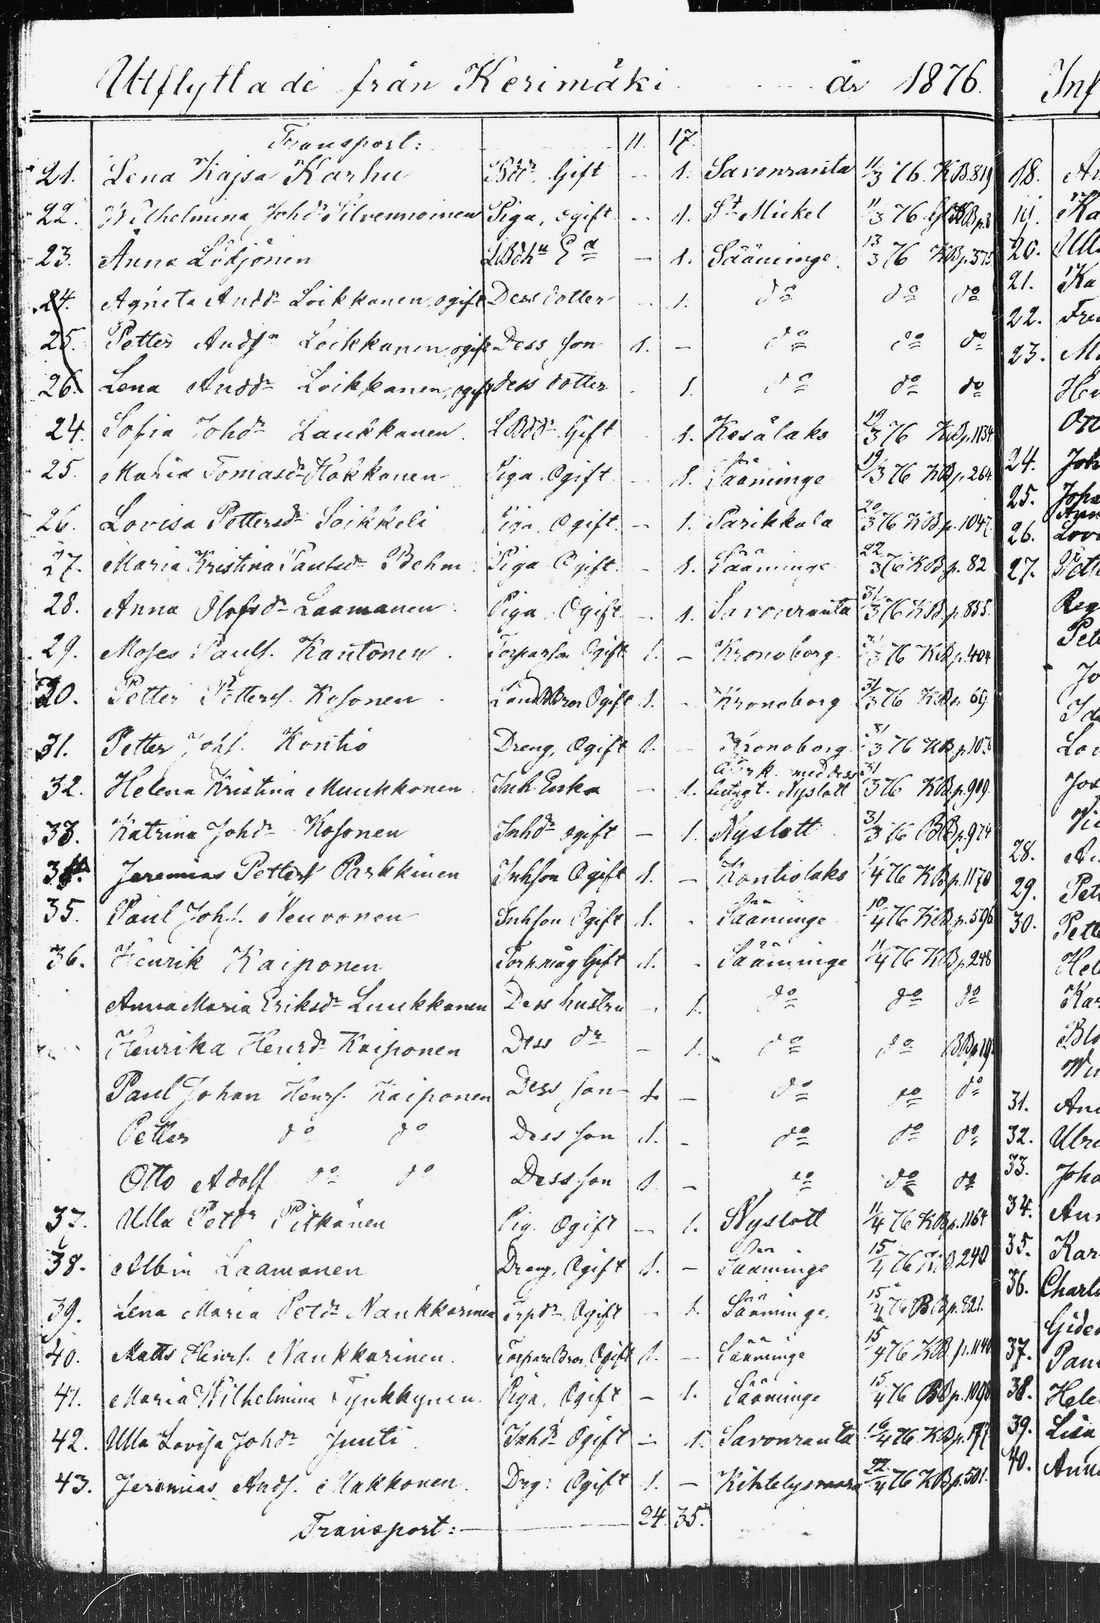 Utflyttade från Kerimäki år 1876.
Transport: 11. 17.
21. Lena Kajsa Karhu Gift — 1. Savonranta 11/3 76 KB 819
22. Wilhelmina Johdr Silvennoinen Piga, ogift — 1. St Mickel 11/3 76
23. Anna Lötjönen — 1. Sääminge 13/3 76 KB p. 375
24. Agneta Andsdr Loikkanen, ogift Dess dotter — 1. do do do
25. Petter Andsn Loikkanen, ogift Dess son 1. — do do do
26. Lena Andsdr Loikkanen, ogift dess dotter 1. do do do
24. Sofia Johdr Laukkanen Gift 1. Kesälaks 19/3 76 KB p. 1134
25. Maria Tomasdr Kokkonen Piga. Ogift 1. Sääminge 19/3 76 KB p. 264
26. Lovisa Pettersdr Soikkeli Piga, Ogift — 1. Parikkala 20/3 76 KB p. 1047
27. Maria Kristina Paulsdr Behm Piga Ogift — 1. Sääminge 22/3 76 KB p. 82
28. Anna Olofsdr Laamanen Piga, Ogift — 1. Savonranta 31/3 76 KB p. 855.
29. Moses Paulss. Kautonen Ogift 1. — Kronoborg 31/3 76 KB p. 404
30. Petter Petterss. Kosonen Ogift 1. — Kronoborg 31/3 76 KB p. 69
31. Petter Johs. Kontio Dreng, Ogift 1. — Kronoborg 31/3 76 KB
32. Helena Kristina Muukkonen Inh Enka — 1. Nyslott 31/3 76 KB p. 909
33. Katrina Johdr Kosonen Inhdr ogift — 1. Nyslott 31/3 76 BB p. 974
34. Jeremias Petterss Parkkinen Inhson Ogift 1. — Kontiolaks 1/4 76 KB p. 1170
35. Paul Johs. Neuvonen Inhson Ogift 1. - Sääminge 10/4 76 KB p. 596
36. Henrik Kaiponen Gift 1. - Sääminge 11/4 76 KB p. 248
Anna Maria Eriksdr Luukkonen Dess hustru — 1. do do do
Henrika Henrdr Kaiponen Dess dr — 1. do do
Paul Johan Henrs. Kaiponen Dess son 1. — do do do
Petter do do Dess son 1. - do do do
Otto Adolf do do Dess son 1. — do do do
37. Ulla Pettdr Pitkänen Pig. Ogift — 1. Nyslott 11/4 76 KB p. 1164
38. Albin Laamanen Dreng, Ogift 1. — Sääminge 15/4 76 240
39. Lena Maria Petdr Naukkarinen Ogift — 1. Sääminge 15/4 76 BB p. 821.
40. Matts Henrs. Naukkarinen. Ogift 1. — Sääminge 15/4 76 KB p. 1140
41. Maria Wilhelmina Tynkkynen Piga, Ogift — 1. Sääminge 15/4 76 BB
42. Ulla Lovisa Johdr Juuti Inhdr Ogift — 1. Savonranta 16/4 76 KB
43. Jeremias Ands. Makkonen Drg: Ogift 1. — Kihtelysvaara 22/4 76 KB p. 501.
Transport: — 24. 35.
Inf
18.
19. Ka
20. Ulla
21. Ka
22. Fre
23. Ma
He
24. Joh
25. Joha
Ann
26. Lovi
27. Pette
Reg
Pet
Jo
Ida
Lov
Jos
28.
29. Pet
30. Pette
Hel
Kar
31. And
32. Ulri
33. Joha
34. Ann
35. Kar
36. Charl
Gide
37.
38. Hele
39. Lisa
40. Anna